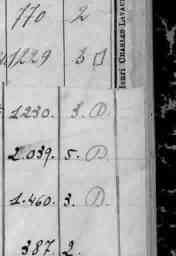 770 2
1229 3
Henri CHARLES-LAVAUZ
1230. 3. D.
2.039. 5. D.
1.460. 3. D.
387. 2.